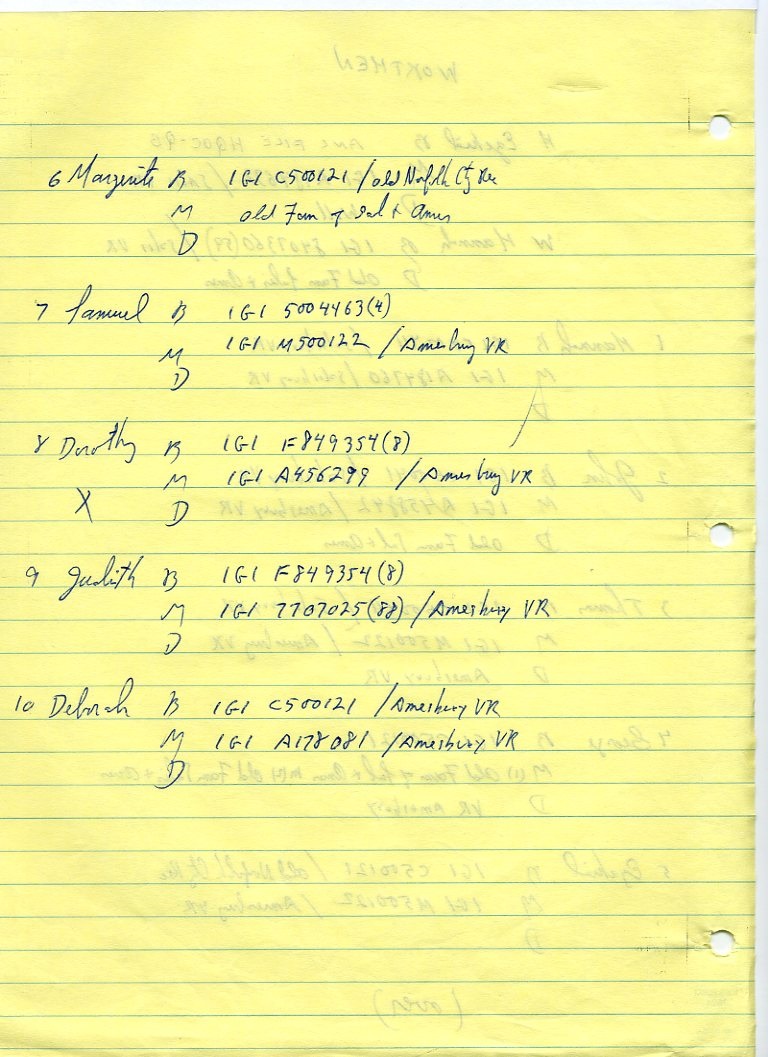 6 Margerite B IGI C500121 / old Norfolk Cty Rec
M old Fam of Sal + Ames
D
7 Samuel B IGI 5004463(4)
M IGI M500122 / Amesbury VR
D
8 Dorothy B IGI F849354(8)
M IGI A456299 / Amesbury VR
X D
9 Judith B IGI F849354(8)
M IGI 7707025(88) / Amesbury VR
D
10 Deborah B IGI C500121 / Amesbury VR
M IGI A178081 / Amesbury VR
D